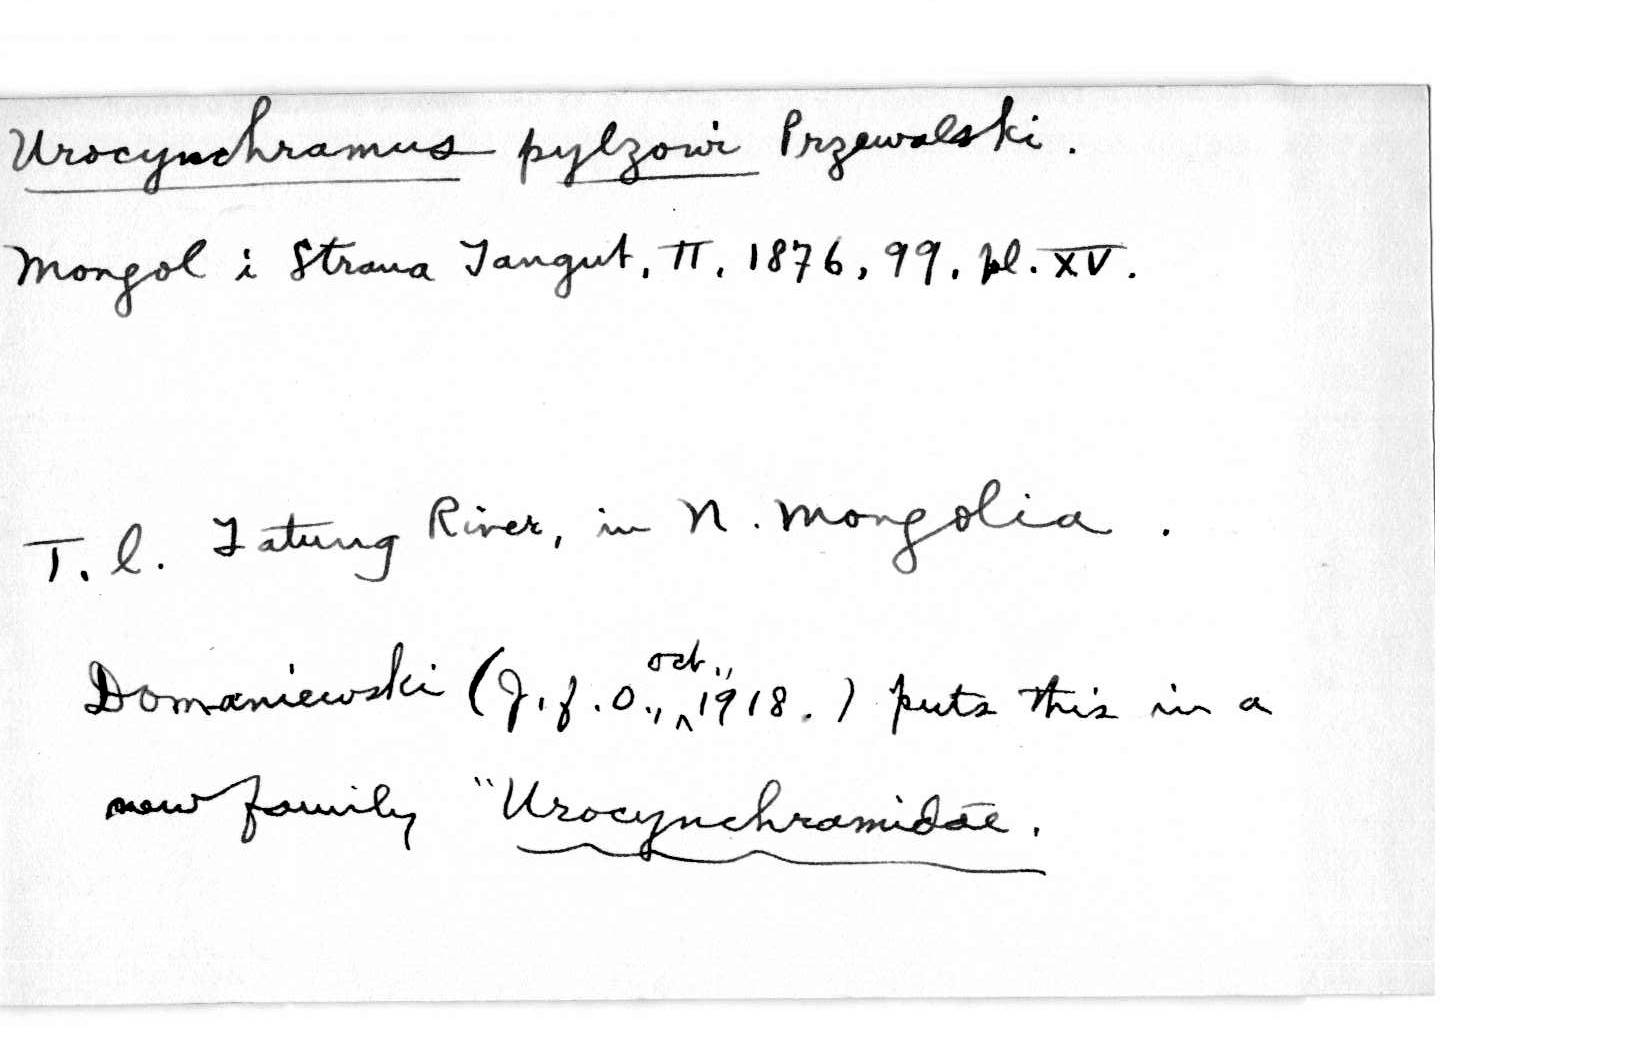 Urocynchramus pylzowi Przewalski.
Mongol i Strana Tangut, II, 1876, 99, pl. XV.
T. l. Tatung River, in N. Mongolia.
Domaniewski (J. f. O., Oct., 1918.) puts this in a
new family "Urocynchramidae.